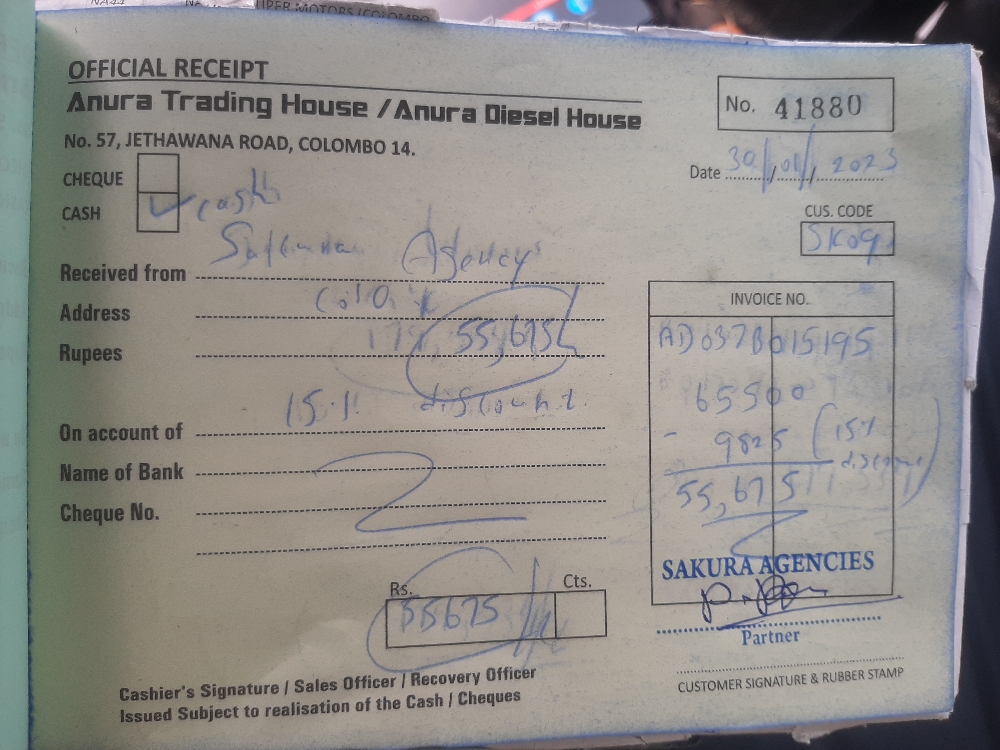 UPER MOTORS /COLOMBO
OFFICIAL RECEIPT
Anura Trading House /Anura Diesel House
No. 57, JETHAWANA ROAD, COLOMBO 14.
No. 41880
Date 30/01/2023
CHEQUE
CASH ✓ cash
CUS. CODE
SK09
Received from Agency
Address
Rupees 55,675/
15% discount
On account of
Name of Bank
Cheque No.
INVOICE NO.
AD037B015195
65500
- 9825 (15% discount)
55,675
SAKURA AGENCIES
Partner
CUSTOMER SIGNATURE & RUBBER STAMP
Rs. Cts.
55675
Cashier's Signature / Sales Officer / Recovery Officer
Issued Subject to realisation of the Cash / Cheques